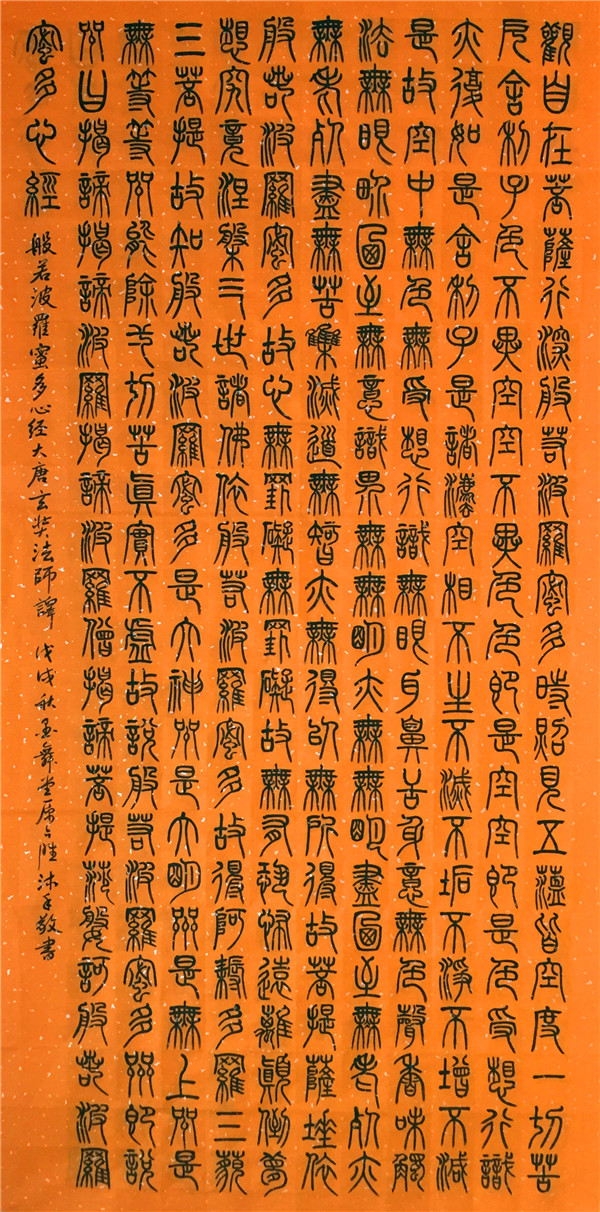 觀自在菩薩行深般若波羅蜜多時照見五蘊皆空度一切苦
厄舍利子色不異空空不異色色即是空空即是色受想行識
亦復如是舍利子是諸灋空相不生不滅不垢不淨不增不減
是故空中無色無受想行識無眼耳鼻舌身意無色聲香味觸
法無眼界乃至無意識界無無明亦無無明盡乃至無老死亦
無老死盡無苦集滅道無智亦無得以無所得故菩提薩埵依
般若波羅蜜多故心無罣礙無罣礙故無有恐怖遠離顛倒夢
想究竟涅槃三世諸佛依般若波羅蜜多故得阿耨多羅三藐
三菩提故知般若波羅蜜多是大神咒是大明咒是無上咒是
無等等咒能除一切苦真實不虛故說般若波羅蜜多咒即說
咒曰揭諦揭諦波羅揭諦波羅僧揭諦菩提莎婆訶般若波羅
蜜多心經
般若波羅蜜多心经大唐玄奘法師譯 戊戌秋墨舞堂 沐手敬書